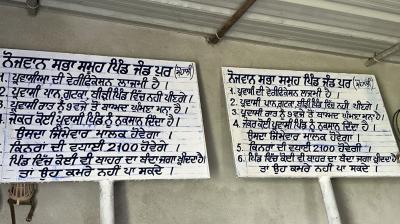 ਨੌਜਵਾਨ ਸਭਾ ਸਮੂਹ ਪਿੰਡ ਜੰਡ ਪੁਰ (ਮੋਹਾਲੀ)
1. ਪ੍ਰਵਾਸੀਆ ਦੀ ਵੈਰੀਫਿਕੇਸ਼ਨ ਲਾਜ਼ਮੀ ਹੈ ।
2. ਪ੍ਰਵਾਸੀ ਪਾਨ, ਗੁਟਕਾ, ਬੀੜੀ ਪਿੰਡ ਵਿੱਚ ਨਹੀ ਪੀਣਗੇ ।
3. ਪ੍ਰਵਾਸੀ ਰਾਤ ਨੂੰ 9 ਵਜੇ ਤੋਂ ਬਾਅਦ ਘੁੰਮਣਾ ਮਨਾ ਹੈ ।
4. ਜੇਕਰ ਕੋਈ ਪ੍ਰਵਾਸੀ ਪਿੰਡ ਨੂੰ ਨੁਕਸਾਨ ਦਿੰਦਾ ਹੈ ।
ਉਸਦਾ ਜਿੰਮੇਵਾਰ ਮਾਲਕ ਹੋਵੇਗਾ ।
5. ਕਿਨਰਾਂ ਦੀ ਵਧਾਈ 2100 ਹੋਵੇਗੀ ।
6. ਪਿੰਡ ਵਿੱਚ ਕੋਈ ਵੀ ਬਾਹਰ ਦਾ ਬੰਦਾ ਜਗਾ ਖ੍ਰੀਦਦਾ ਹੈ
ਤਾਂ ਉਹ ਕਮਰੇ ਨਹੀਂ ਪਾ ਸਕਦੇ ।
ਨੌਜਵਾਨ ਸਭਾ ਸਮੂਹ ਪਿੰਡ ਜੰਡ ਪੁਰ (ਮੋਹਾਲੀ)
1. ਪ੍ਰਵਾਸੀਆ ਦੀ ਵੈਰੀਫਿਕੇਸ਼ਨ ਲਾਜ਼ਮੀ ਹੈ ।
2. ਪ੍ਰਵਾਸੀ ਪਾਨ, ਗੁਟਕਾ, ਬੀੜੀ ਪਿੰਡ ਵਿੱਚ ਨਹੀ ਪੀਣਗੇ ।
3. ਪ੍ਰਵਾਸੀ ਰਾਤ ਨੂੰ 9 ਵਜੇ ਤੋਂ ਬਾਅਦ ਘੁੰਮਣਾ ਮਨਾ ਹੈ ।
4. ਜੇਕਰ ਕੋਈ ਪ੍ਰਵਾਸੀ ਪਿੰਡ ਨੂੰ ਨੁਕਸਾਨ ਦਿੰਦਾ ਹੈ ।
ਉਸਦਾ ਜਿੰਮੇਵਾਰ ਮਾਲਕ ਹੋਵੇਗਾ ।
5. ਕਿਨਰਾਂ ਦੀ ਵਧਾਈ 2100 ਹੋਵੇਗੀ ।
6. ਪਿੰਡ ਵਿੱਚ ਕੋਈ ਵੀ ਬਾਹਰ ਦਾ ਬੰਦਾ ਜਗਾ ਖ੍ਰੀਦਦਾ ਹੈ
ਤਾਂ ਉਹ ਕਮਰੇ ਨਹੀਂ ਪਾ ਸਕਦੇ ।